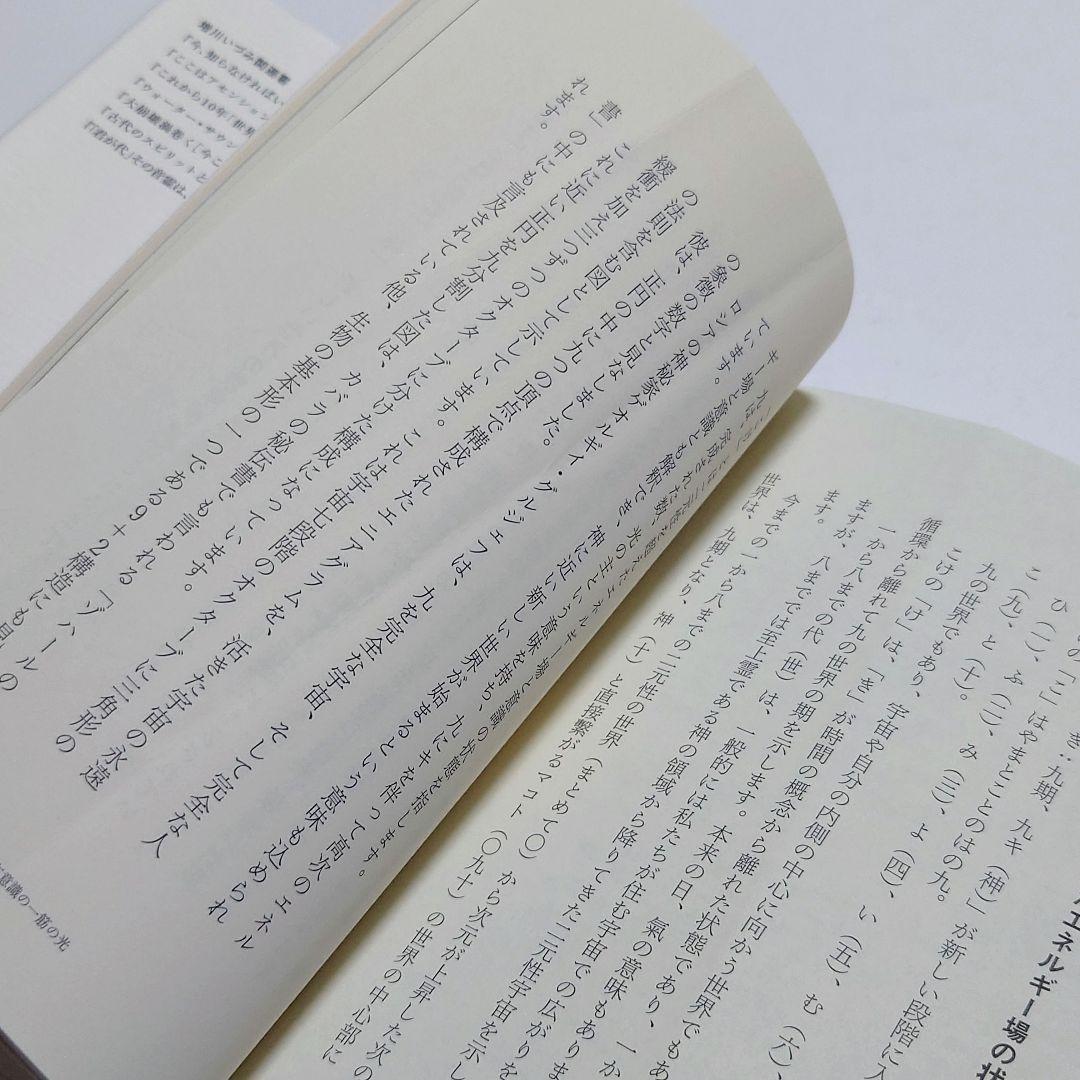 エネルギー場の状
き:九期、九キ(神)」が新しい段階に入
ひ(一)、ふ(二)、み(三)、よ(四)、い(五)、む(六)、
の「こ」はやまとことのはの九。
こ(九)、と(十)。
九の世界でもあり、
こけの「け」は、「き」が時間の概念から離れた状態であり、氣の意味もあ
循環から離れて九の世界の期を示します。
一から八までの代(世)は、一般的には私たちが住む宇宙での広がり
ますが、八までで
は至上霊である神の領域から降りてきた二元性宇宙を示し
ます。
今までの一から八までの二元性の世界(まとめて〇)から次元が上昇した次の
世界は、九期となり、神(十)と直接繋がるマコト(〇九十)の世界の中心部に
ギー場と意識とも解釈でき、光の主という意味を持ち、九にキを伴って高次のエネル
ています。
九は、完成された数、神に近い新しい世界が始まるという意味も込められ
ロシアの神秘家ゲオルギイ・グルジェフは、九を完全な宇宙、そして完全な人
の象徴の数字と見なしました。
彼は、正円の中に九つの頂点で構成されたエニアグラムを、活きた宇宙の永遠
の法則を含む図として示しています。これは宇宙七段階のオクターブに三角形の
緩衝を加え三つずつのオクターブに分けた構成になっています。
これに近い正円を九分割した図は、カバラの秘伝書でも言われる「ゾハールの
書」の中にも言及されている他、生物の基本形の一つである9+2構造にも見
れます。
意識の一筋の光
『今、知らなければい
『ここはアセンション
『これから10年「世界
『ウォーター・サウン
『大崩壊渦巻く「今こ
『古代のスピリットと
『「君が代」その音霊は、